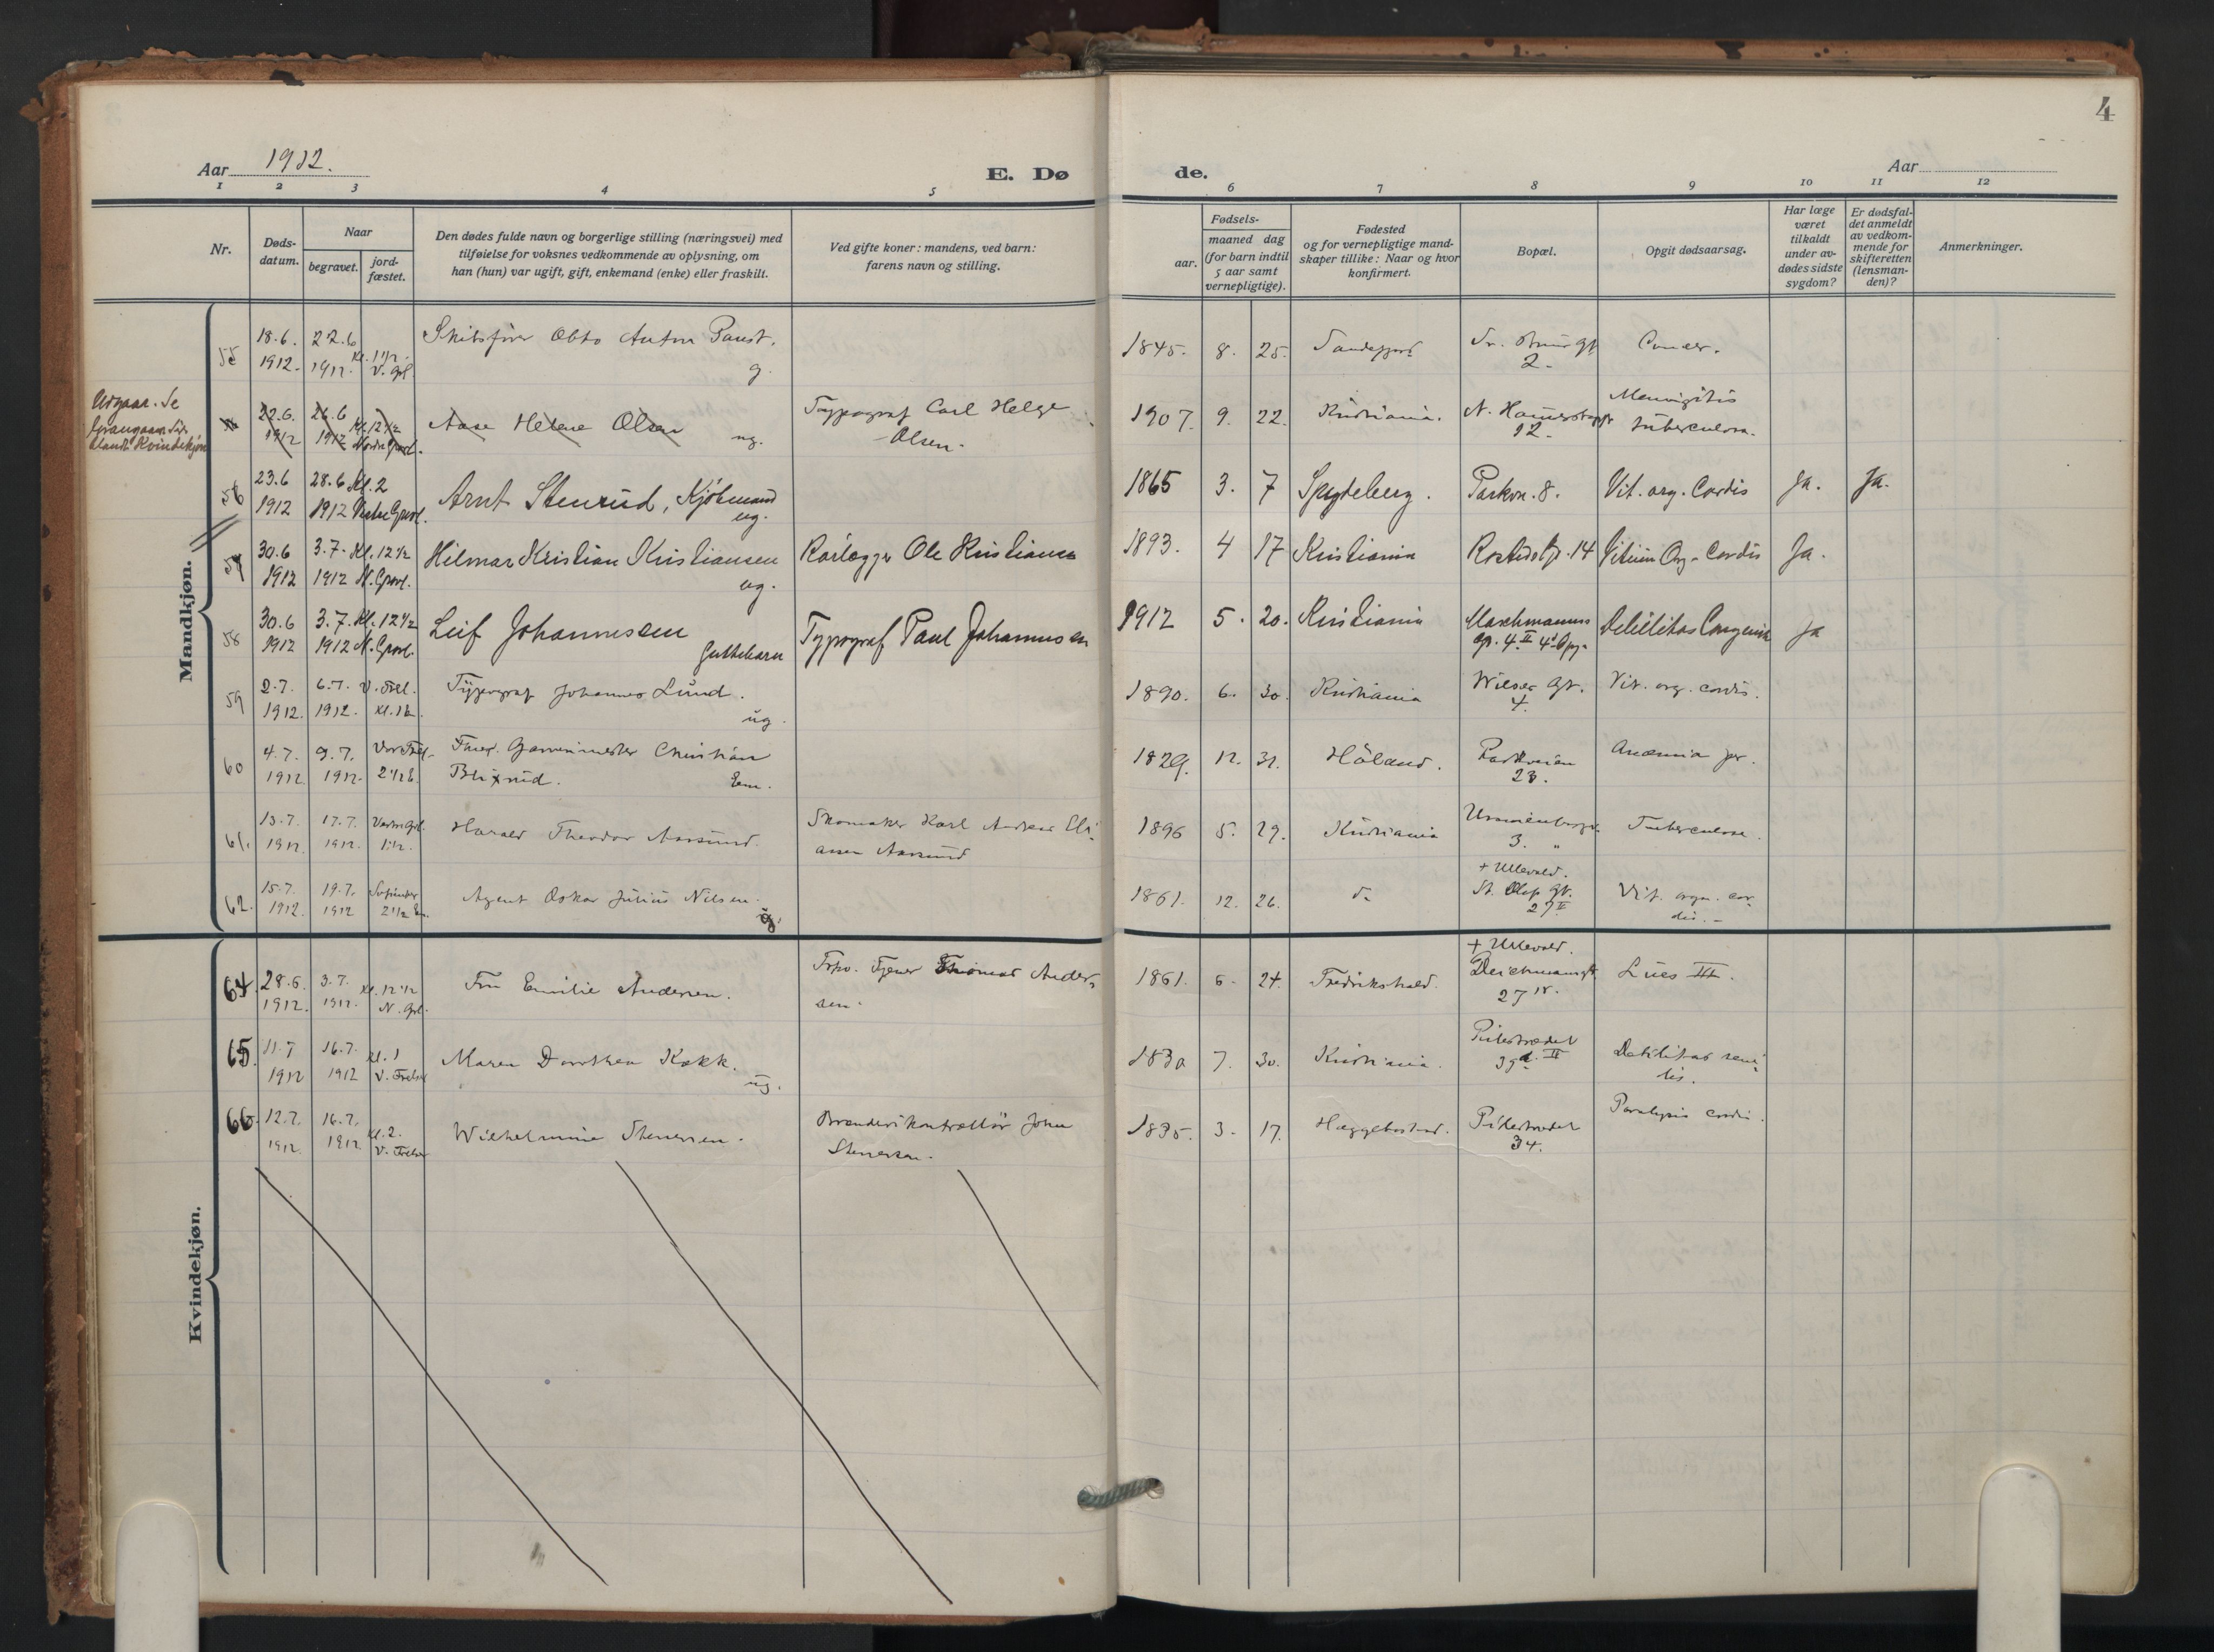 4
Aar 1912.
E. Dø
de.
Aar
1 2 3 4 5 6 7 8 9 10 11 12
Nr.
Døds-
datum.
Naar
begravet.
jord-
fæstet.
Den dødes fulde navn og borgerlige stilling (næringsvei) med
tilføielse for voksnes vedkommende av oplysning, om
han (hun) var ugift, gift, enkemand (enke) eller fraskilt.
Ved gifte koner: mandens, ved barn:
farens navn og stilling.
Fødsels-
aar.
maaned dag
(for barn indtil
5 aar samt
vernepligtige).
Fødested
og for vernepligtige mand-
skaper tillike: Naar og hvor
konfirmert.
Bopæl.
Opgit dødsaarsag.
Har læge
været
tilkaldt
under av-
dødes sidste
sygdom?
Er dødsfal-
det anmeldt
av vedkom-
mende for
skifteretten
(lensman-
den)?
Anmerkninger.
Mandkjøn.
55 18.6. 22.6 Otto Anton 1845. 8. 25. Sandefjord Cancer.
1912. 1912. Kl. 1 1/2 V. Grl. g. 2.
Utgaar. Se
blandt Kvindekjøn
22.6. 26.6 Kl. 12 1/2 Aase Helene Olsen Typograf Carl Helge 1907. 9. 22. Kristiania. Meningitis
1912 1912 Nordre Gravl. ug. Olsen. 12. tuberculosa.
56 23.6 28.6 Kl. 2 Arnt Stenrud, Kjøbmand 1865 3. 7 Spydeberg. Parkv. 8. Vit. org. Cordis Ja. Ja.
1912 1912 Vestre Gravl. ug.
57 30.6 3.7. Kl. 12 1/2 Hilmar Kristian Kristiansen Rørlegger Ole Kristiansen 1893. 4 17 Kristiania 14 Vitium Org. Cordis Ja.
1912 1912 N. Gravl. ug.
58 30.6 3.7. Kl. 12 1/2 Leif Johannessen Typograf Paul Johannessen 1912 5. 20. Kristiania Debilitas Congenita Ja
1912 1912 N. Gravl. Guttebarn
59 2.7. 6.7. V. Frel. Typograf Johannes Lund. 1890. 6. 30. Kristiania Wilses Gt. Vit. org. cordis.
1912. 1912. ug. 4.
60 4.7. 9.7. Christian 1829. 12. 31. Höland. Parkveien Anæmia per.
1912 1912. 2 1/2 E. Em. 28.
61. 13.7. 17.7. Vestre Grl. Harald Theodor Aarsund. Skomaker Karl Andreas Eli- 1896 5. 29. Kristiania Tuberculose.
1912. 1912. assen Aarsund 3.
62. 15.7. 19.7. Agent Oskar Julius Nilsen. 1861. 12. 26. do + Ullevold. Vit. orga. cor-
1912. 1912 2 1/2 g. St. Olafs Gt. dis. -
27 II
Kvindekjøn.
64. 28.6. 3.7. Kl. 12 1/2 Fru Emilie Andersen. Tjener Thomas Ander- 1861. 6. 24. Fredrikshald. + Ullevold. Lues III.
1912. 1912. N. Grl. sen. Deichmansgt.
27 IV.
65. 11.7 16.7. Kl. 1 Maren Dorothea Kokk. 1830 7. 30. Kristiania. Pilestrædet Debilitas seni-
1912 1912 V. Frelser ug. II lis.
66. 12.7. 16.7. Kl. 2. Wilhelmine Stenersen. Brænderikontrollör John 1835. 3. 17. Hæggebostad. Pilestrædet Paralysis cordis.
1912. 1912 V. Frelser Stenersen. 34.